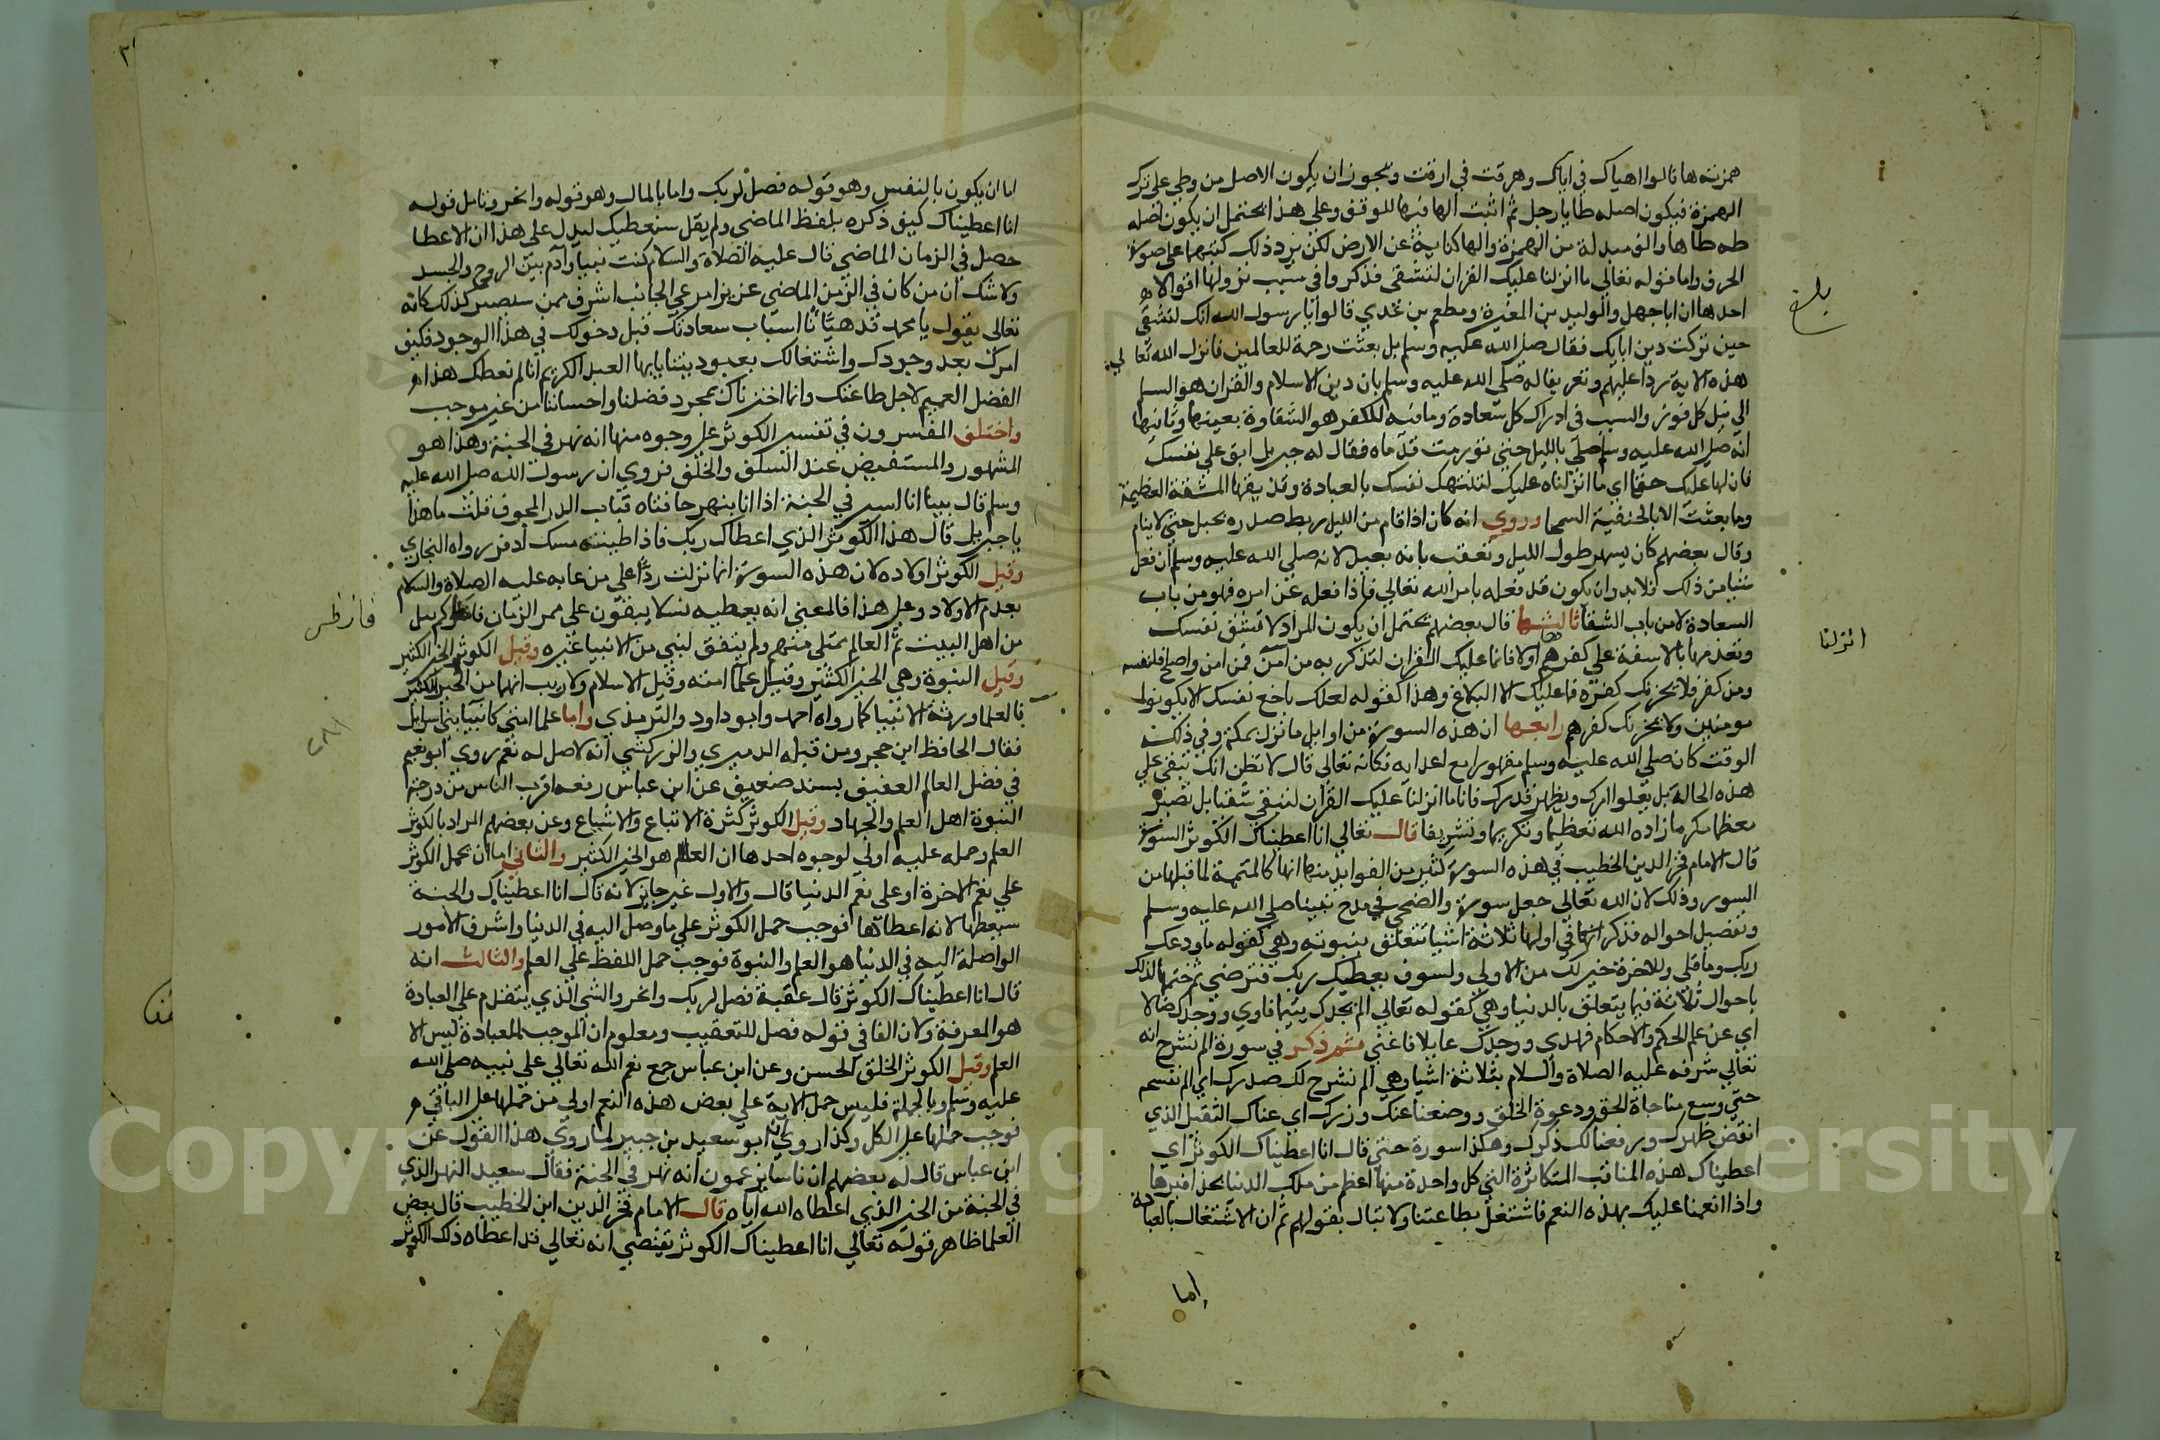 همزته ها قالوا هياك في اياك وهرقت في ارقت ويجوز ان يكون الاصل من وطي على ترك
الهمزة فيكون اصله طا يا رجل ثم اثبت الها فيها للوقف وعلي هذا يحتمل ان يكون اصله
طه طاها والالف مبدلة من الهمزة والها كناية عن الارض لكن يرد ذلك كتبهما على صورة
الحرف واما قوله تعالي ما انزلنا عليك القران لتشقى فذكروا في سبب نزولها اقوالا
احدها ان ابا جهل والوليد بن المغيرة ومطعم بن عدي قالوا يا رسول الله انك لتشقي
حين تركت دين ابايك فقال صلى الله عليه وسلم بل بعثت رحمة للعالمين فانزل الله تعالي
هذه الاية ردا عليهم وتعريفا له صلى الله عليه وسلم بان دين الاسلام والقران هو السلم
الي نيل كل فوز والسبب في ادراك كل سعادة وما فيه الكفر هو الشقاوة بعينها وثانيها
انه صلى الله عليه وسلم صلي بالليل حتى تورمت قدماه فقال له جبريل ابق علي نفسك
فان لها عليك حقا اي ما انزلناه عليك لتنهك نفسك بالعبادة وتذيقها المشقة العظيمة
وما بعثت الا بالحنفية السمحا وروي انه كان اذا قام من الليل ربط صدره بحبل حتى لا ينام
وقال بعضهم كان يسهر طول الليل وتعقب بانه بعيد لانه صلي الله عليه وسلم ان فعل
شيا من ذلك فلابد وان يكون قد فعله بامر الله تعالي فاذا فعله عن امره فهو من باب
السعادة لا من باب الشقا ثالثها قال بعضهم يحتمل ان يكون المراد لا تشق نفسك
وتعذبها بالاسف علي كفرهم اولا فانما عليك القران لتذكر به من امن فمن امن واصلح فلنفسه
ومن كفر فلا يحزنك كفره فما عليك الا البلاغ وهذا كقوله لعلك باخع نفسك الا يكونوا
مومنين ولا يحزنك كفرهم رابعها ان هذه السورة من اوايل ما نزل بمكة وفي ذلك
الوقت كان صلي الله عليه وسلم مقهورا مع اعدايه فكانه تعالي قال لا تظن انك تبقى علي
هذه الحالة بل يعلوا امرك ويظهر قدرك فانا ما انزلنا عليك القران لتبقي شقيا بل تصير
معظما مكرما زاده الله تعظيما وتكريما وتشريفا قال تعالي انا اعطيناك الكوثر السورة
قال الامام فخر الدين الخطيب في هذه السورة كثير من الفوايد منها انها كالمتممة لما قبلها من
السور وذلك لان الله تعالي جعل سورة والضحى في مدح نبينا صلي الله عليه وسلم
وتفصيل احواله فذكر في اولها ثلاثة اشيا تتعلق بنبوته وهي كقوله ما ودعك
ربك وما قلي وللاخرة خير لك من الاولي ولسوف يعطيك ربك فترضي ثم ختمها كذلك
باحوال ثلاثة فيما يتعلق بالدنيا وهي كقوله تعالي الم يجدك يتيما فاوي ووجدك ضالا
اي عن علم الحكم والاحكام فهدي ووجدك عايلا فاغني ثم ذكر في سورة الم نشرح انه
تعالي شرفه عليه الصلاة والسلام بثلاثة اشيا وهي الم نشرح لك صدرك اي الم نفسحه
حتي وسع مناجاة الحق ودعوة الخلق ووضعنا عنك وزرك اي عناك الثقيل الذي
انقض ظهرك ورفعنا لك ذكرك وهكذا سورة سورة حتى قال انا اعطيناك الكوثر اي
اعطيناك هذه المناقب المتكاثرة التي كل واحدة منها اعظم من ملك الدنيا بحذافيرها
واذا انعمنا عليك بهذه النعم فاشتغل بطاعتنا ولا تبال بقولهم ثم ان الاشتغال بالعبادة
اما
انزلنا
اما ان يكون بالنفس وهو قوله فصل لربك واما بالمال وهو قوله وانحر وتامل قوله
انا اعطيناك كيف ذكره بلفظ الماضي ولم يقل سنعطيك ليدل على هذا ان الاعطا
حصل في الزمان الماضي قال عليه الصلاة والسلام كنت نبيا وآدم بين الروح والجسد
ولا شك ان من كان في الزمن الماضي عزيزا مرعي الجانب اشرف ممن سيصير كذلك كانه
تعالي يقول يا محمد قد هيانا اسباب سعادتك قبل دخولك في هذا الوجود فكيف
امرك بعد وجودك واشتغالك بعبوديتنا يا ايها العبد الكريم انا لم نعطك هذا
الفضل العميم لاجل طاعتك وانما اخترناك بمجرد فضلنا واحساننا من غير موجب
واختلف المفسرون في تفسير الكوثر علي وجوه منها انه نهر في الجنة وهذا هو
المشهور والمستفيض عند السلف والخلف فروي ان رسول الله صلى الله عليه
وسلم قال بينا انا اسير في الجنة اذا انا بنهر حافتاه قباب الدر المجوف قلت ما هذا
يا جبريل قال هذا الكوثر الذي اعطاك ربك فاذا طينته مسك اذفر رواه البخاري
وقيل الكوثر اولاده لان هذه السورة انما نزلت ردا علي من عابه عليه الصلاة والسلام
بعدم الاولاد وعلي هذا فالمعنى انه يعطيه نسلا يبقون على ممر الزمان فانظر كم قتل
من اهل البيت ثم العالم ممتلي منهم ولم يتفق لنبي من الانبيا غيره وقيل الكوثر الخير الكثير
وقيل النبوة وهي الخير الكثير وقيل علما امته وقيل الاسلام ولا ريب انهما من الخير الكثير
فالعلما ورثة الانبيا كما رواه احمد وابو داود والترمذي واما علما امتي كانبيا بني اسرايل
فقال الحافظ ابن حجر ومن قبله الدميري والزركشي انه لا اصل له نعم روي ابو نعيم
في فضل العالم العفيف بسند ضعيف عن ابن عباس رفعه اقرب الناس من درجة
النبوة اهل العلم والجهاد وقيل الكوثر كثرة الاتباع والاشياع وعن بعضهم المراد بالكوثر
العلم وحمله عليه اولي لوجوه احدها ان العلم هو الخير الكثير والثاني اما ان يحمل الكوثر
علي نعم الاخرة او على نعم الدنيا قال والاول غير جايز لانه قال انا اعطيناك والجنة
سيعطيها لا انه اعطاها فوجب حمل الكوثر علي ما وصل اليه في الدنيا واشرف الامور
الواصلة اليه في الدنيا هو العلم والنبوة فوجب حمل اللفظ علي العلم والثالث انه
قال انا اعطيناك الكوثر قال عقبه فصل لربك وانحر والشي الذي يتقدم على العبادة
هو المعرفة ولان الفا في قوله فصل للتعقيب ومعلوم ان الموجب للعبادة ليس الا
العلم وقيل الكوثر الخلق الحسن وعن ابن عباس جميع نعم الله تعالي علي نبيه صلى الله
عليه وسلم وبالجملة فليس حمل الاية علي بعض هذه النعم اولي من حملها على الباقي
فوجب حملها على الكل وكذا روي ان ابو سعيد بن جبير لما روي هذا القول عن
ابن عباس قال له بعضهم ان ناسا يزعمون انه نهر في الجنة فقال سعيد النهر الذي
في الجنة من الخير الذي اعطاه الله اياه قال الامام فخر الدين ابن الخطيب قال بعض
العلما ظاهر قوله تعالي انا اعطيناك الكوثر يقتضي انه تعالي قد اعطاه ذلك الكوثر
فانظر